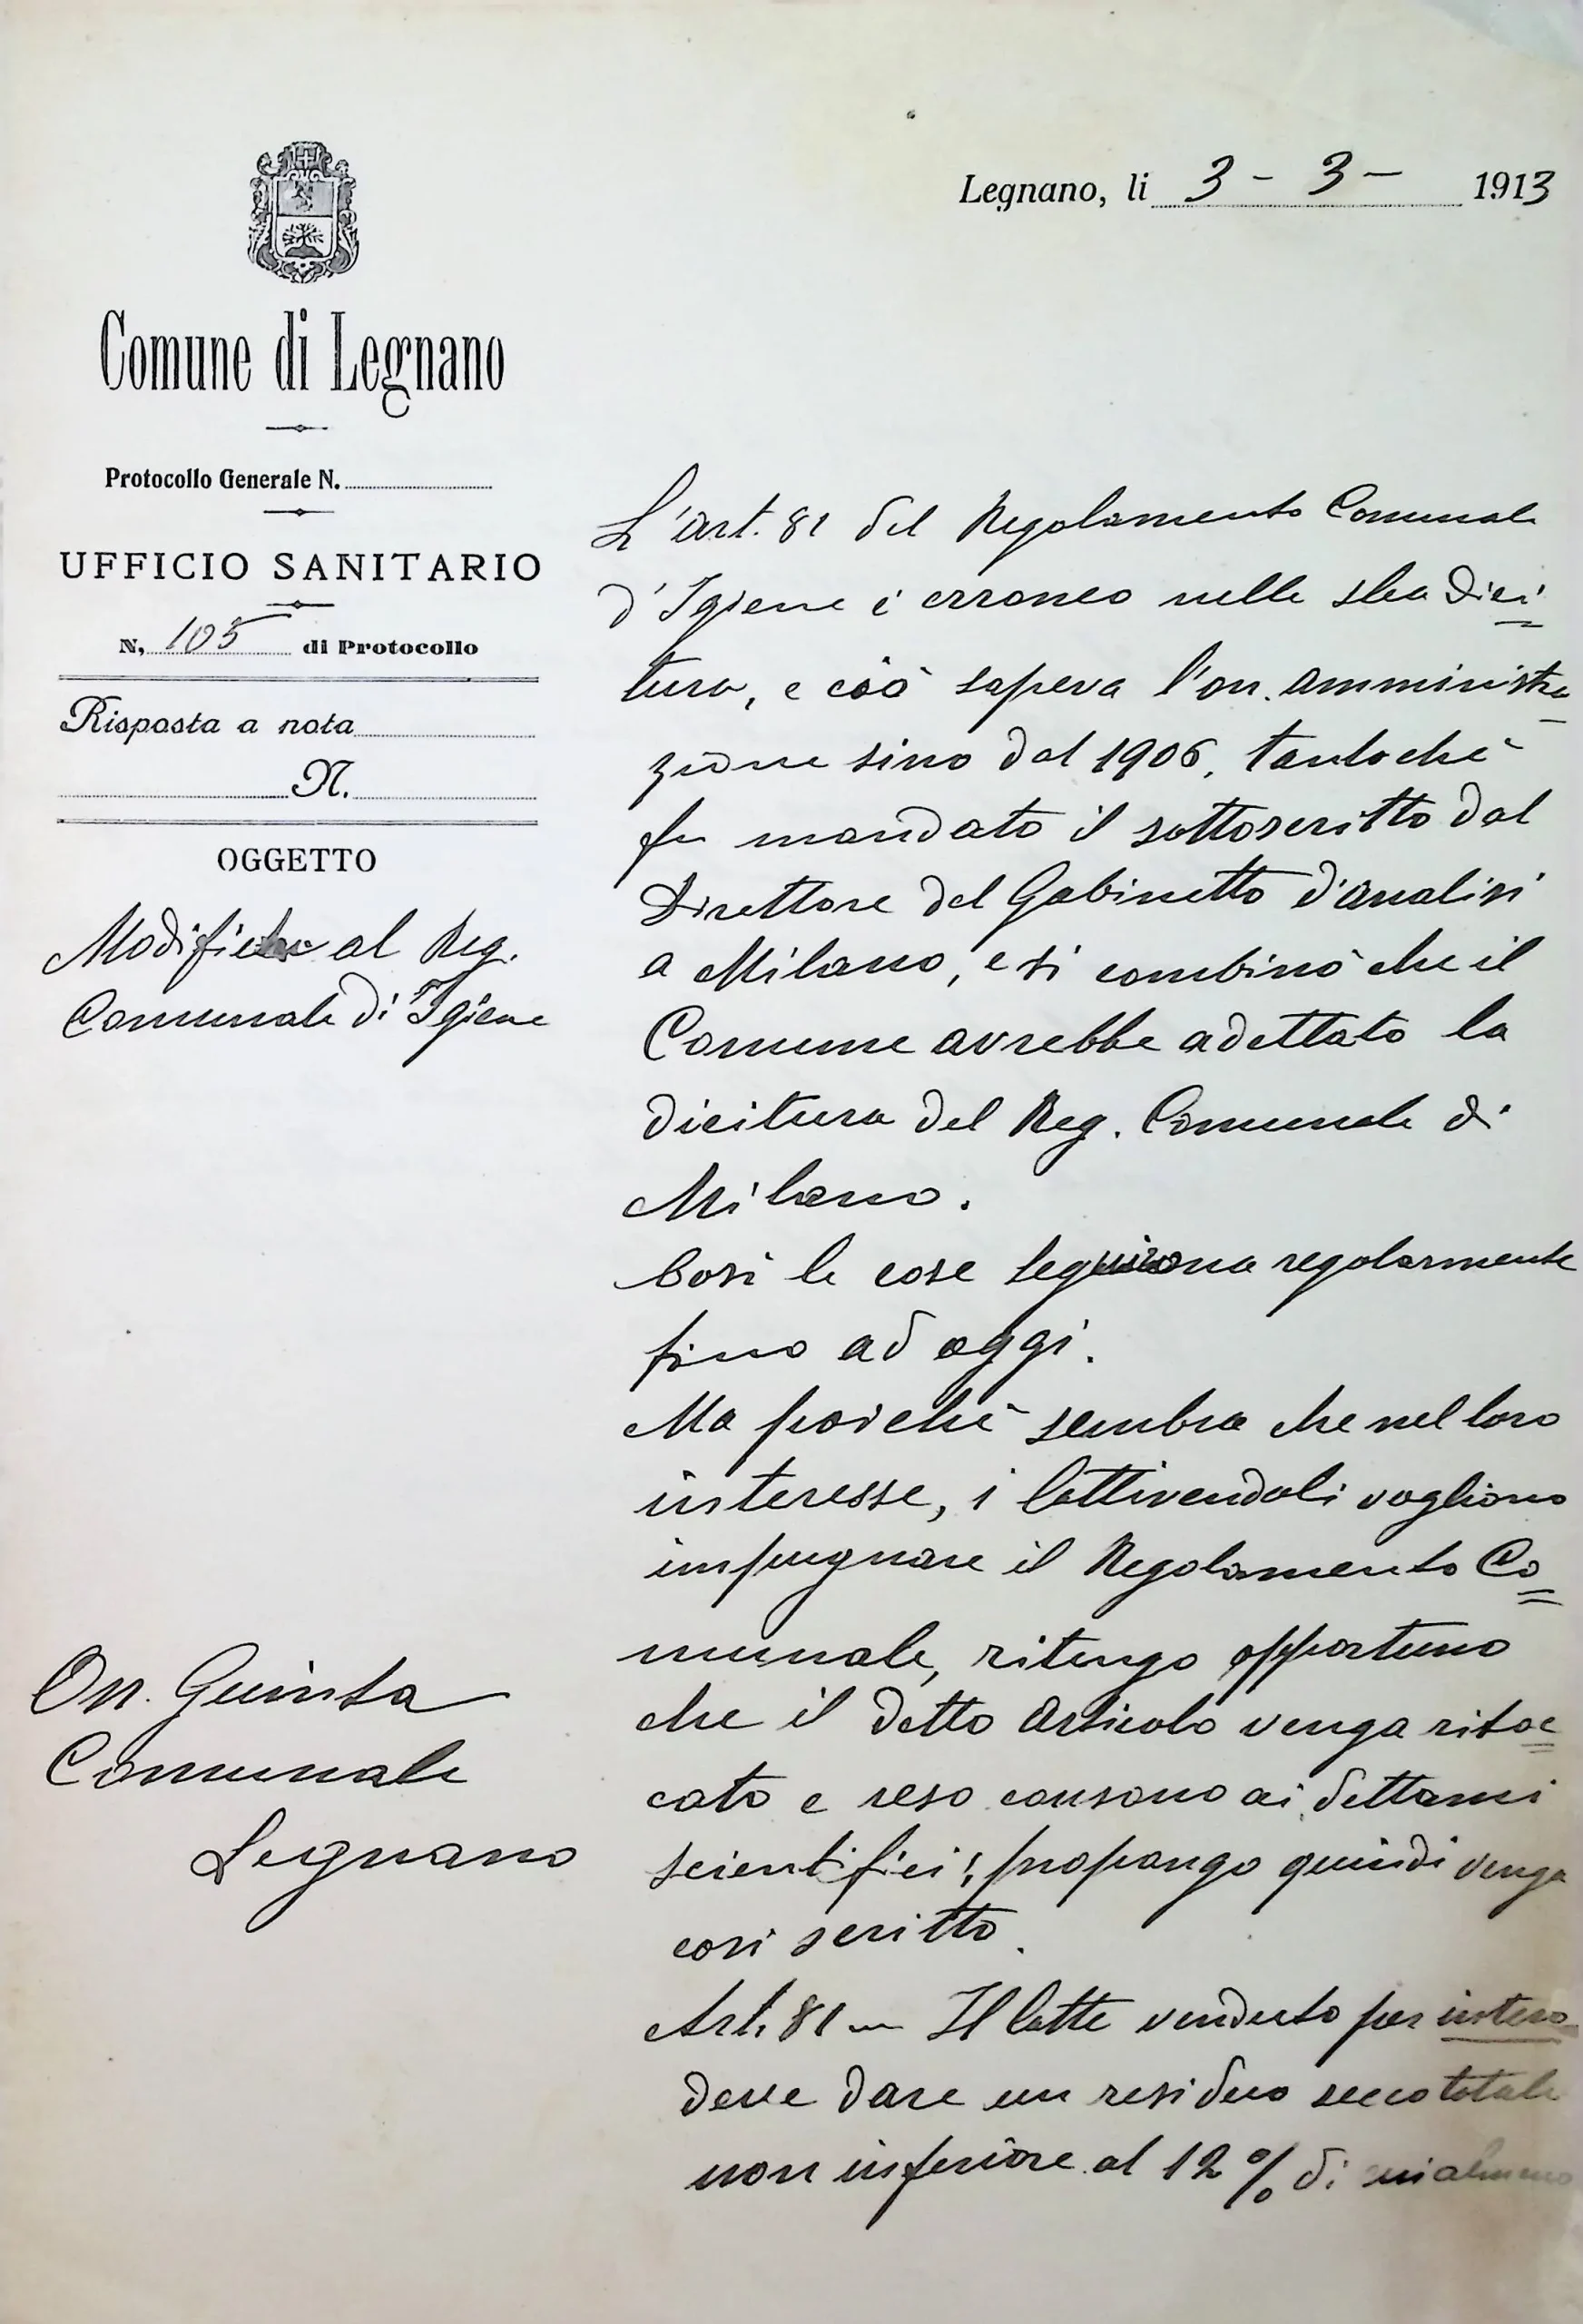 Legnano, li 3 - 3 - 1913
Comune di Legnano
Protocollo Generale N.
UFFICIO SANITARIO
N. 105 di Protocollo
Risposta a nota
N.
OGGETTO
Modifiche al Reg.
Comunale di Igiene
On. Giunta
Comunale
Legnano
L'art. 81 del Regolamento Comunale
d'Igiene è erroneo nella sua dici=
tura, e ciò sapeva l'on. amministra
zione sino dal 1906, tantochè
fu mandato il sottoscritto dal
Direttore del Gabinetto d'analisi
a Milano, e si combinò che il
Comune avrebbe adottato la
dicitura del Reg. Comunale di
Milano.
Così le cose regolarmente
fino ad oggi.
Ma poichè sembra che nel loro
interesse, i lattivendoli vogliono
impugnare il Regolamento Co=
munale, ritengo opportuno
che il detto articolo venga ritoc=
cato e reso consono ai dettami
scientifici; propongo quindi venga
così scritto.
Art. 81 — Il latte venduto per intero
deve dare un residuo secco totale
non inferiore al 12 % di cui almeno